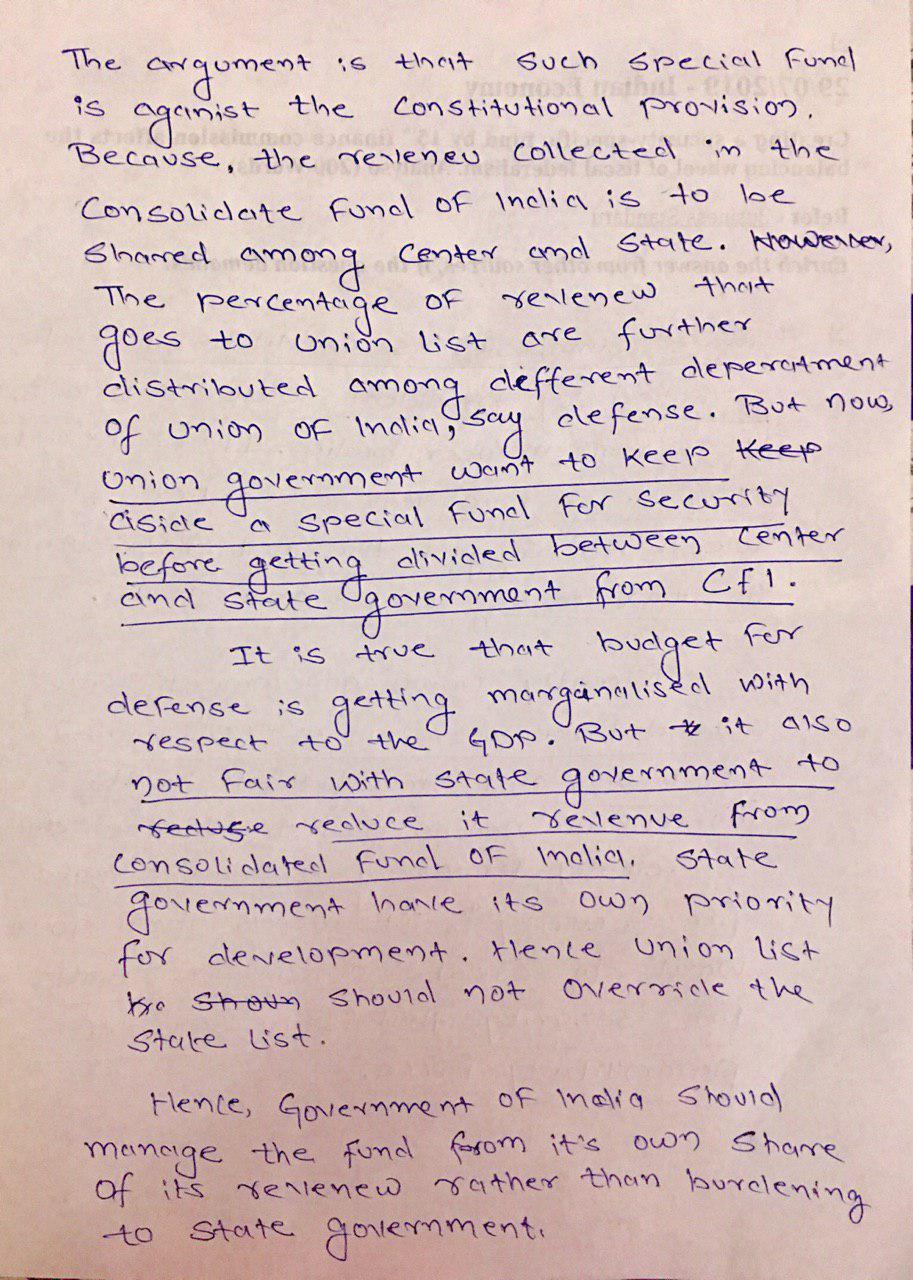 The argument is that such special fund
is aganist the constitutional provision.
Because, the reveneu collected in the
Consolidate Fund of India is to be
Shared among center and state. However,
The percentage of revenew that
goes to Union list are further
distributed among different deperatment
of Union of India, say defense. But now,
Union government want to keep keep
aside a special Fund For security
before getting divided between center
and state government from CFI.
It is true that budget for
defense is getting marganalised with
respect to the GDP. But it also
not fair with state government to
reduse reduce it revenue from
consolidated Fund of India. State
government have its own priority
for development. Hence Union list
should not override the
State list.
Hence, Government of India should
manage the fund from it's own share
of its revenew rather than burdening
to state government.